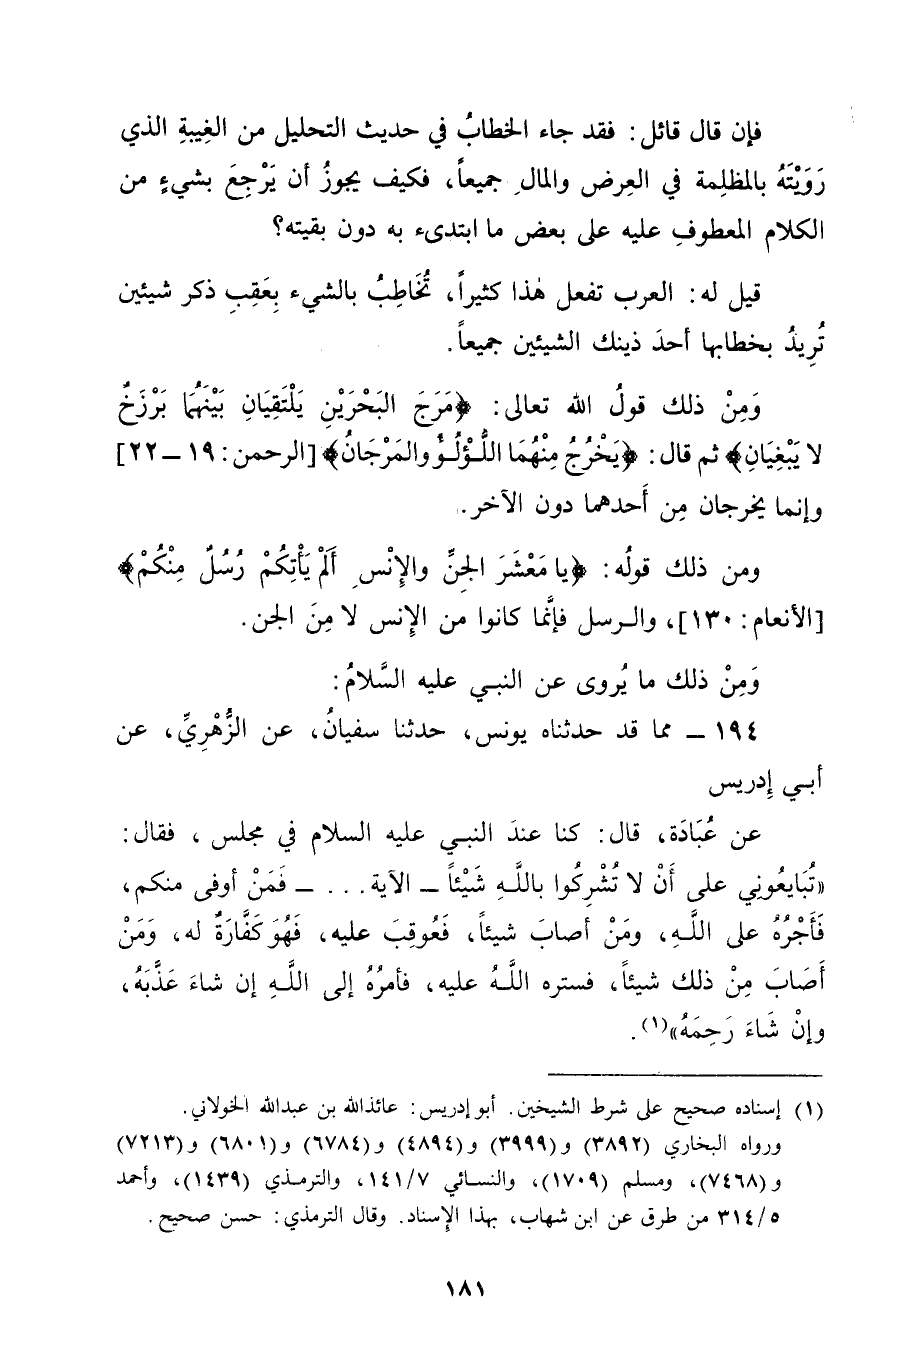 فإن قال قائل: فقد جاء الخطابُ في حديث التحليل من الغِيبةِ الذي
رَوَيْتَهُ بالمظلِمة في العِرض والمالِ جميعاً، فكيف يجوزُ أن يَرْجِعَ بشيءٍ من
الكلام المعطوفِ عليه على بعض ما ابتدىء به دون بقيته؟
قيل له: العرب تفعل هٰذا كثيراً، تُخَاطِبُ بالشيء بِعَقِبِ ذكر شيئين
تُرِيدُ بخطابها أحدَ ذينك الشيئين جميعاً.
وَمِنْ ذلك قولُ الله تعالى: ﴿مَرَجَ البَحْرَيْنِ يَلْتَقِيَانِ بَيْنَهُمَا بَرْزَخٌ
لا يَبْغِيَانِ﴾ ثم قال: ﴿يَخْرُجُ مِنْهُمَا اللُّؤْلُؤُ والمَرْجَانُ﴾ [الرحمن: ١٩ – ٢٢]
وإنما يخرجان مِن أَحدهما دون الآخر.
ومن ذلك قولُه: ﴿يا مَعْشَرَ الجِنِّ والإِنْسِ أَلَمْ يَأْتِكُمْ رُسُلٌ مِنْكُمْ﴾
[الأنعام: ١٣٠]، والرسل فإنَّما كانوا من الإنس لا مِنَ الجن.
وَمِنْ ذلك ما يُروى عن النبي عليه السَّلامُ:
١٩٤ – مما قد حدثناه يونس، حدثنا سفيانُ، عن الزُّهْرِيِّ، عن
أبي إدريس
عن عُبَادَة، قال: كنا عندَ النبي عليه السلام في مجلس ، فقال:
«تُبَايعُونِي على أَنْ لا تُشْرِكُوا باللَّهِ شَيْئاً – الآية... – فَمَنْ أوفى منكم،
فَأَجْرُهُ على اللَّهِ، ومَنْ أصابَ شيئاً، فَعُوقِبَ عليه، فَهُوَ كَفَّارَةٌ له، وَمَنْ
أَصَابَ مِنْ ذلك شيئاً، فستره اللَّهُ عليه، فأمرُهُ إلى اللَّهِ إن شاءَ عَذَّبَهُ،
وإنْ شَاءَ رَحِمَهُ»(١).
(١) إسناده صحيح على شرط الشيخين. أبو إدريس: عائذالله بن عبدالله الخولاني.
ورواه البخاري (٣٨٩٢) و(٣٩٩٩) و(٤٨٩٤) و(٦٧٨٤) و(٦٨٠١) و(٧٢١٣)
و (٧٤٦٨)، ومسلم (١٧٠٩)، والنسائي ١٤١/٧، والترمذي (١٤٣٩)، وأحمد
٣١٤/٥ من طرق عن ابن شهاب، بهذا الإسناد. وقال الترمذي: حسن صحيح.
١٨١